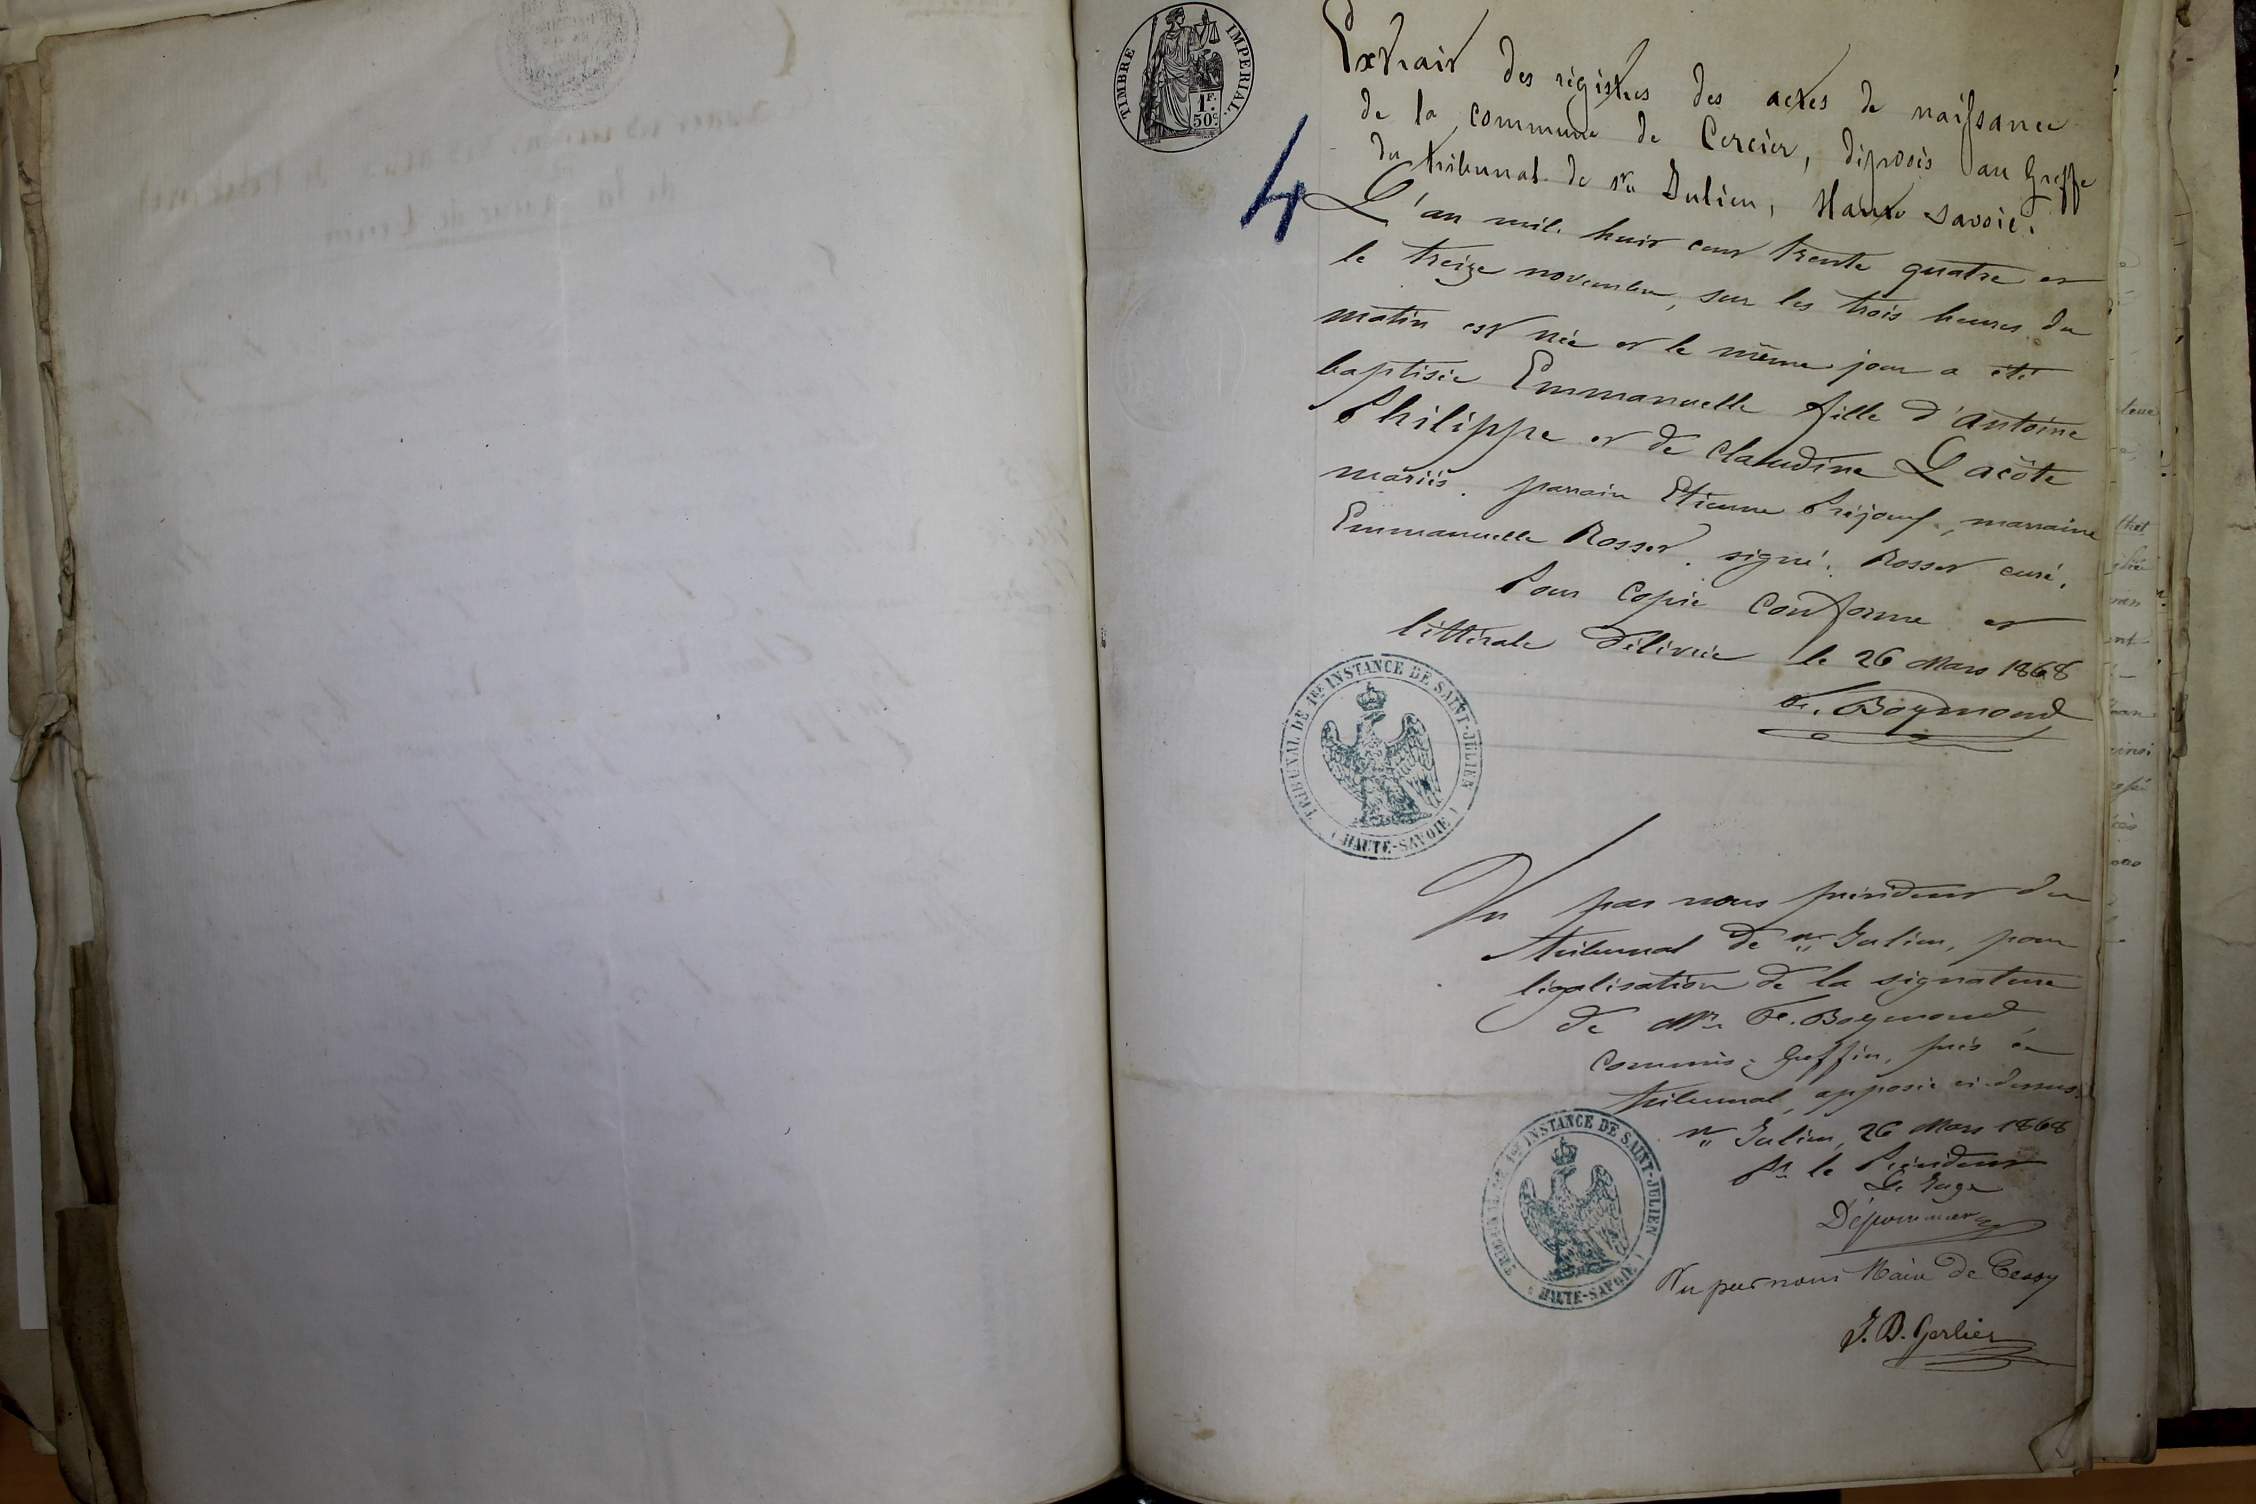 TIMBRE IMPERIAL.
1F.
50c.
4
Extrait des régistres des actes de naissance
de la commune de Cercier, déposés au Greffe
du tribunal de St Julien, Haute Savoie.
L'an mil huit cent trente quatre et
le treize novembre, sur les trois heures du
matin est née et le même jour a été
baptisée Emmanuelle fille d'Antoine
Philippe et de Claudine Lacôte
mariés. parrain Etienne marraine
Emmanuelle Rosset. signé: Rosset curé.
Pour copie conforme et
littérale délivrée le 26 Mars 1868
Fc. Boymond
TRIBUNAL DE 1RE INSTANCE DE SAINT-JULIEN
( HAUTE-SAVOIE )
Vu par nous président du
tribunal de St Julien, pour
légalisation de la signature
de Mr Fc. Boymond
commis-Greffier, près ce
tribunal, apposée ci-dessus.
St Julien, 26 Mars 1868
Pr le Président
Le Juge
TRIBUNAL DE 1RE INSTANCE DE SAINT-JULIEN
( HAUTE-SAVOIE )
Vu par nous Maire de Cessy
J. B. Gerlier